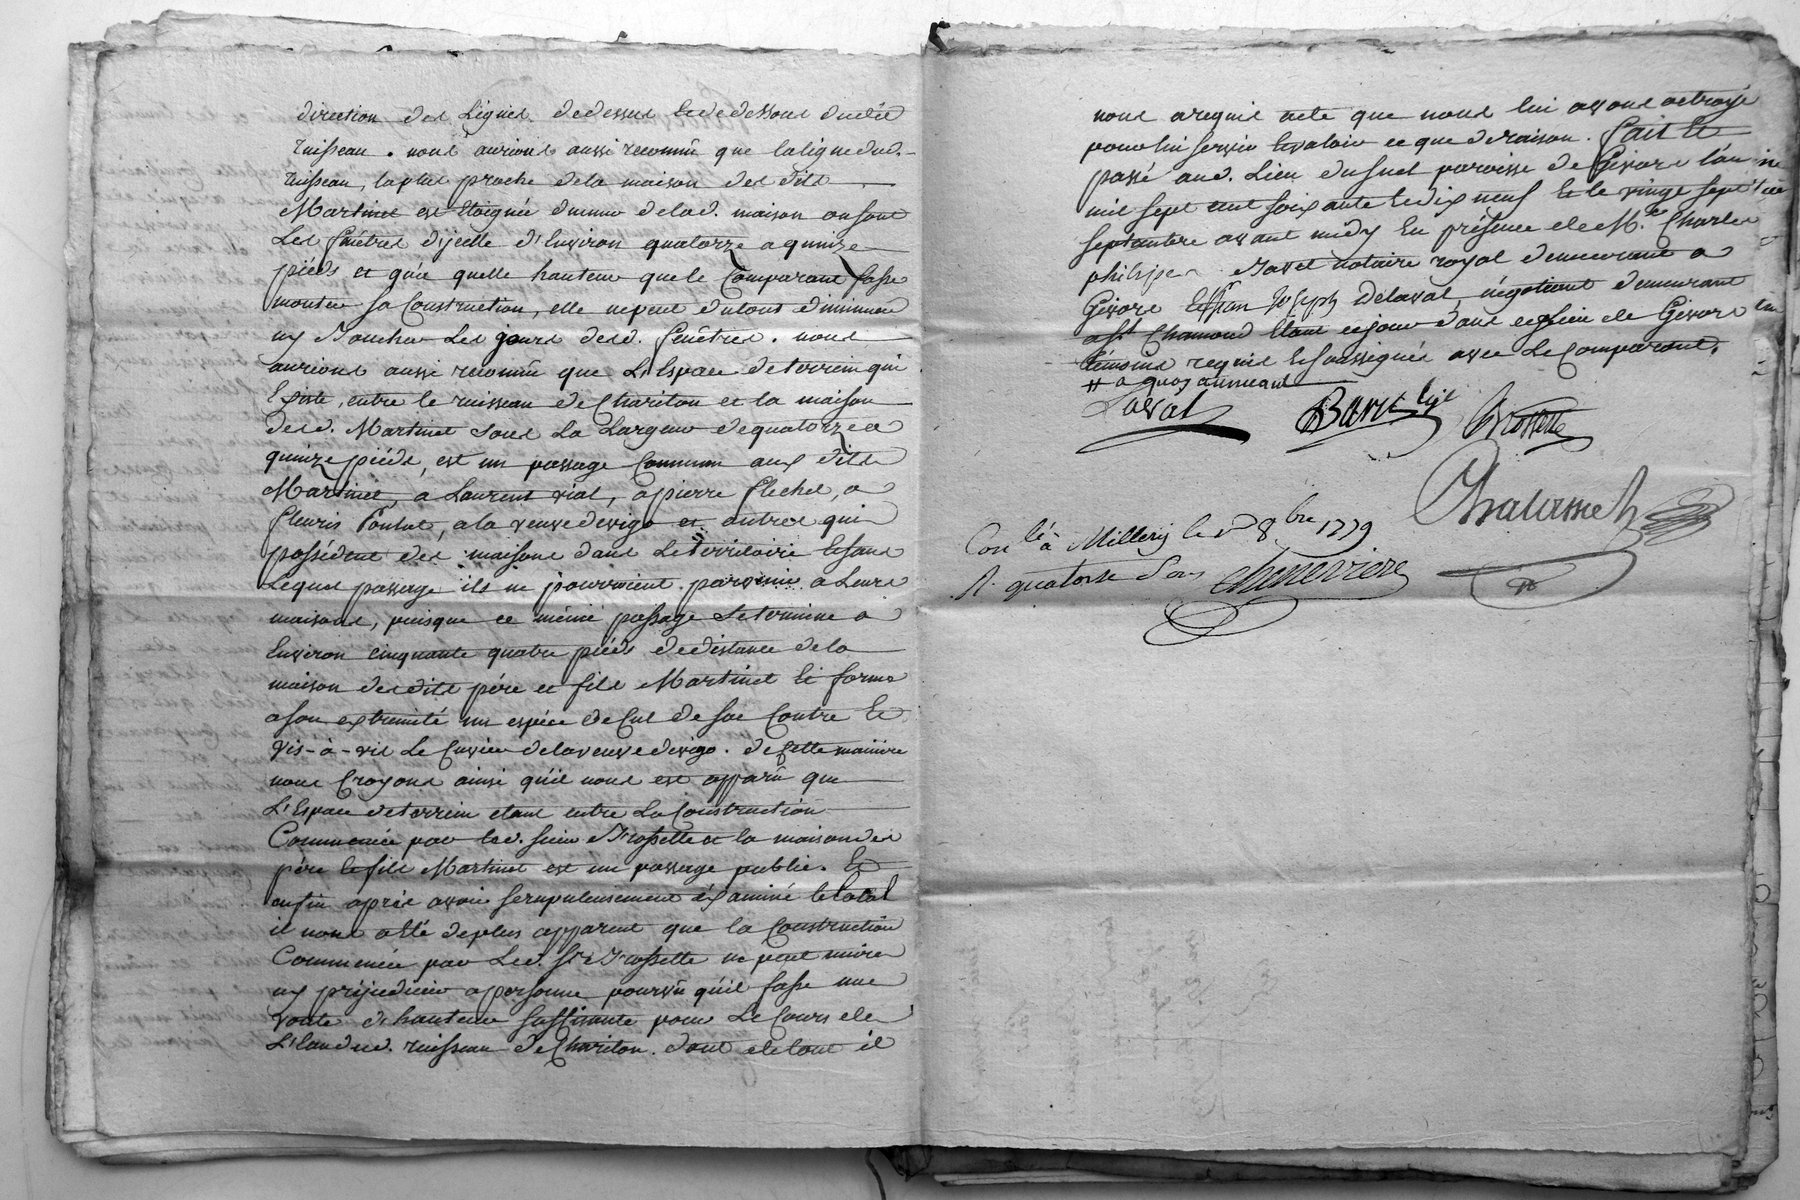 direction des lignes dedessus et dedessous dudit
ruisseau. nous aurions aussi reconnû que la ligne dud.
ruisseau, la plus proche de la maison des dits
Martinet est Eloignée du mur de lad. maison ou sont
Les fenêtres d'jcelle d'Environ quatorze a quinze
piéds et qu'a quelle hauteur que le Comparant fasse
monter sa Construction, elle ne peut du tout diminuer
ny Boucher Les jours desd. fenêtres. nous
aurions aussi reconnû que L'Espace de terrein qui
Existe, entre le ruisseau de Chariton et la maison
desd. Martinet sous La Largeur de quatorze a
quinze piéds, est un passage Commun aux dits
Martinet, a Laurent vial, a pierre flechet, a
fleuris, a la veuve devigo et autres qui
possédent des maisons dans Le territoire et sans
Lequel passage ils ne pourroient parvenir a Leurs
maisons, puisque ce même passage Se termine a
Environ cinquante quatre piéds de distance de la
maison desdits pére et fils Martinet Et forme
a son extremité un espéce de Cul de Sac Contre Et
vis-à-vis Le Cuvier de la veuve devigo. de cette maniére
nous Croyons ainsi qu'il nous est apparû que
L'Espace de terrein etant entre La Construction
Commencée par led. sieur Brossette et la maison des
pére et fils Martinet est un passage public. Et
enfin aprés avoir scrupuleusement éxaminé le local
il nous a été de plus apparent que la Construction
Commencée par Led. Sr. Brossette ne peut nuire
ny préjudicier a personne pourvû qu'il fasse une
voute d'hauteur suffisante pour Le Cours de
L'Eau dud. ruisseau de Chariton. dont de tout il
nous a requis acte que nous lui avons octroyé
pour lui servir et valoir ce que de raison. fait Et
passé aud. Lieu du suel paroisse de Givors l'an
mil sept cent soixante et dix neuf Et le vingt sept
septembre avant midy En présence de Me. Charles
philippe Javet notaire royal demeurant a
Givors et Jean Joseph Delaval, négotiant demeurant
a St Chamond Etant cejour dans ce lieu de Givors
témoins requis et soussignés avec Le Comparant.
# a quoy
Laval Brossette
Con lé a Millery le 8bre 1779
R. quatorze Sous Cheneviere